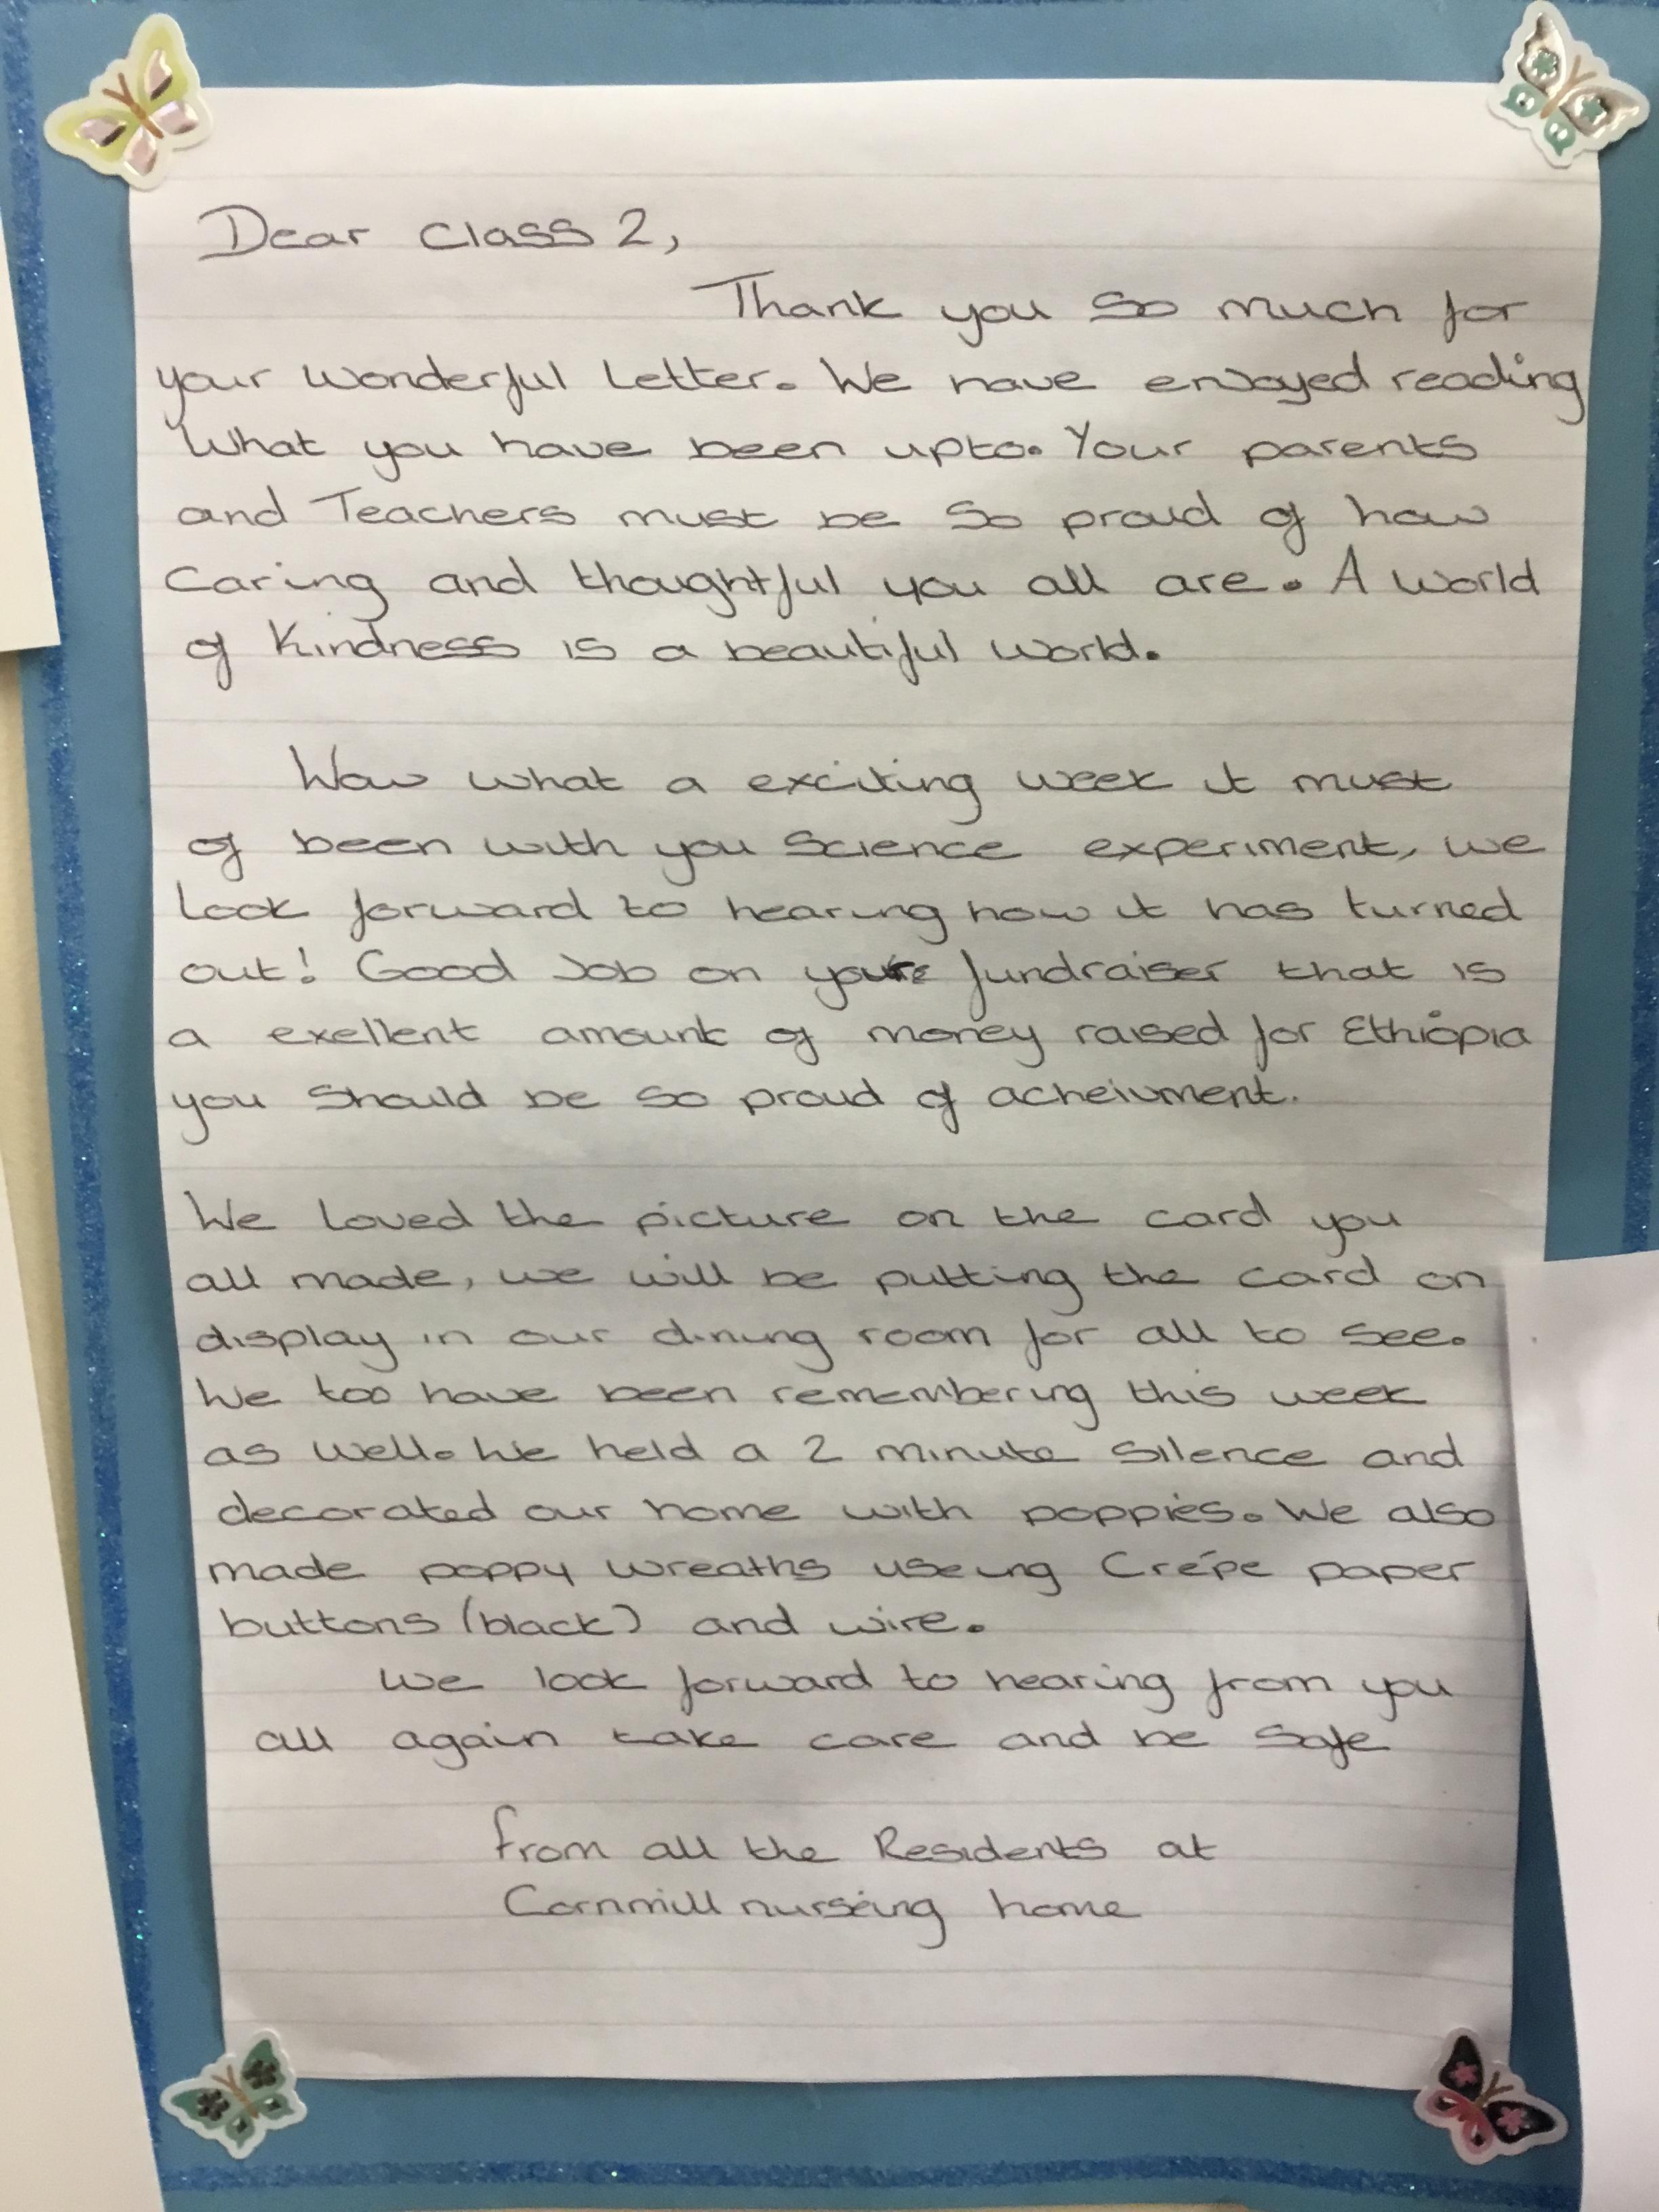 Dear Class 2,
Thank you so much for
your wonderful Letter. We have enjoyed reading
What you have been upto. Your parents
and Teachers must be so proud of how
Caring and thoughtful you all are. A world
of Kindness is a beautiful world.
Wow what a exciting week it must
of been with you Science experiment, we
Look forward to hearing how it has turned
out! Good Job on your fundraiser that is
a exellent amount of money raised for Ethiopia
you should be so proud of acheivment.
We Loved the picture on the card you
all made, we will be putting the card on
display in our dining room for all to see.
We too have been remembering this week
as well. We held a 2 minute silence and
decorated our home with poppies. We also
made poppy wreaths useing Crépe paper
buttons (black) and wire.
We look forward to hearing from you
all again take care and be safe
from all the Residents at
Cornmill nurseing home